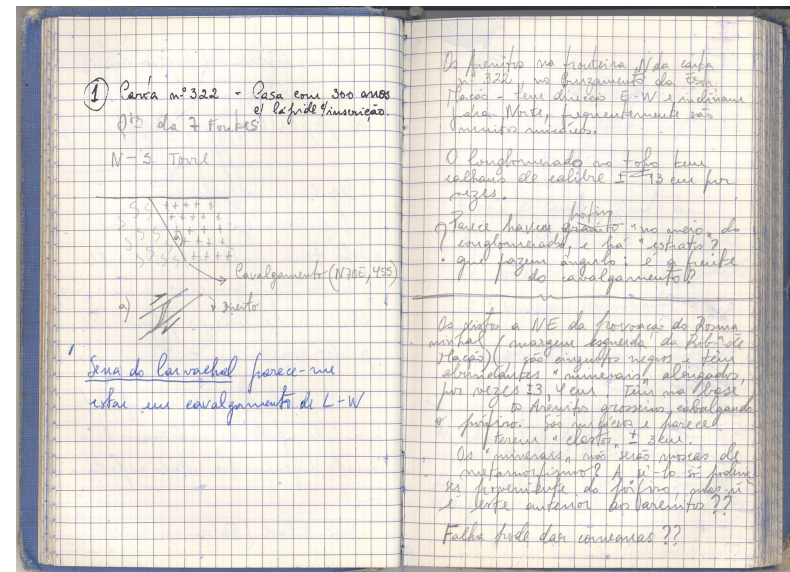 1 Carta nº 322 - Casa com 300 anos
c/ lápide c/ inscrição
Qta da 7 Fontes
N-S Torril
Cavalgamento (N70E, 45S)
a) Direito
Serra do Carvalhal parece-me
estar em cavalgamento de L-W
Os Arenitos na fronteira N da carta
nº 322, no cruzamento da
Mação - tem direcção E-W e inclinam
para Norte, frequentemente são
muito
O Conglomerado no topo tem
calhaus de calibre ± 13 cm por
vezes.
pórfiro
? Parece haver granito "no meio" do
conglomerado, e há "estratos?
que fazem ângulo: é a frente
do cavalgamento?
Os xistos a NE da povoação do Rosma
ninhal (margem esquerda da Rib.ª de
Mação) são cinzentos negros e têm
abundantes "minerais" alongados,
por vezes ±3, 4 cm. Têm na base
os Arenitos grosseiros, cavalgando
o pórfiro. São e parece
terem "clastos" ± 3 cm.
Os "minerais" não serão moscas de
metamorfismo? A sê-lo só podem
ser proveniente do pórfiro, mas
é este anterior aos arenitos??
Falha pode dar corneanas??